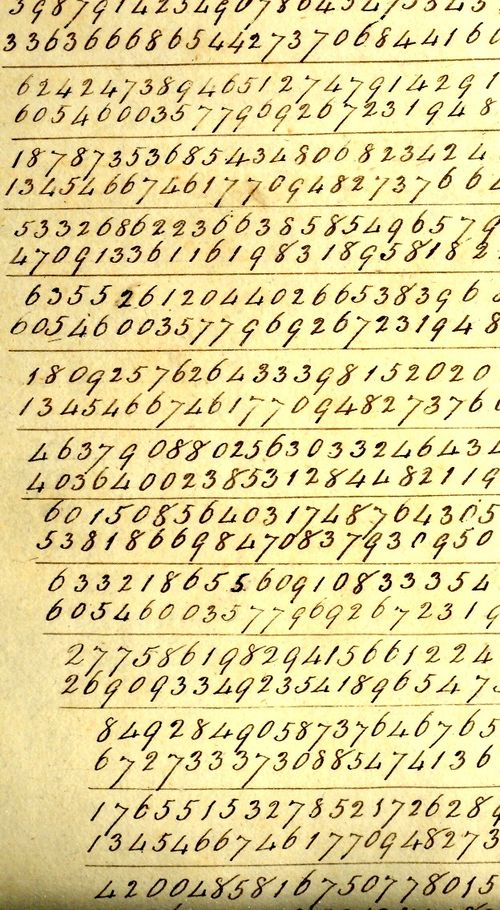 336366686544273706844160
62424738946512747914291
60546003577969267231948
18787353685434806823424
134546674617709482737664
53326862236638585496579
47091336116198318958182
6355261204402665383968
60546003577969267231948
1809257626433398152020
13454667461770948273766
4637908802563033246434
4036400238531284482119
601508564031748764305
538186698470837930950
633218655609108333354
605460035779692672319
27758619829415661224
269093349235418965475
8492849058737646765
6727333730885474136
17655153278521726289
13454667461770948273
4200485816750778015